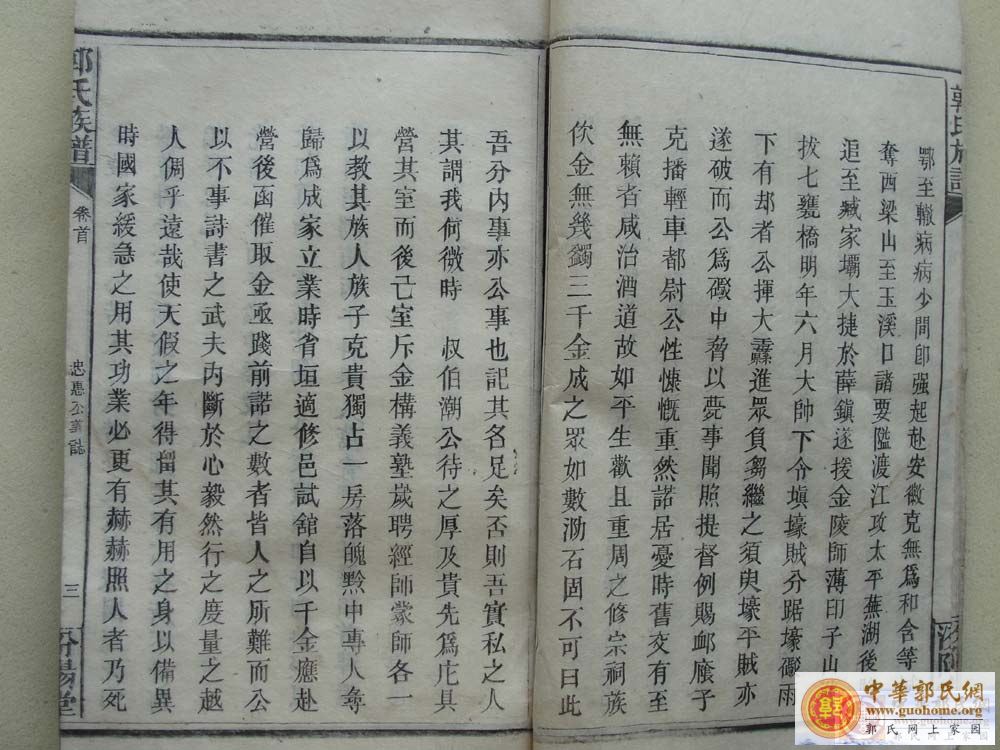 鄂至轍病病少間卽强起赴安徽克無爲和含等
奪西梁山至玉溪口諸要隘渡江攻太平蕪湖後
追至臧家壩大捷於薛鎮遂援金陵師薄印子山
拔七甕橋明年六月大帥下令塡壕賊分踞壕礮雨
下有却者公揮大纛進眾負芻繼之須臾壕平賊亦
遂破而公爲礮中脅以薨事聞照提督例賜卹廕子
克播輕車都尉公性慷慨重然諾居憂時舊交有至
無賴者咸治酒道故如平生歡且重周之修宗祠族
佽金無幾蠲三千金成之眾如數泐石固不可曰此
吾分內事亦公事也記其各足矣否則吾實私之人
其謂我何微時 叔伯潮公待之厚及貴先爲庀具
營其室而後己室斥金構義塾歲聘經師蒙師各一
以教其族人族子克貴獨占一房落魄黔中專人奪
歸爲成家立業時省垣適修邑試舘自以千金應赴
營後函催取金亟踐前諾之數者皆人之所難而公
以不事詩書之武夫內斷於心毅然行之度量之越
人倜乎遠哉使天假之年得留其有用之身以備異
時國家緩急之用其功業必更有赫赫照人者乃死
郭氏族譜
卷首
忠惠公墓誌
三
汾陽堂
中華郭氏網
www.guohome.org
郭氏网上家园